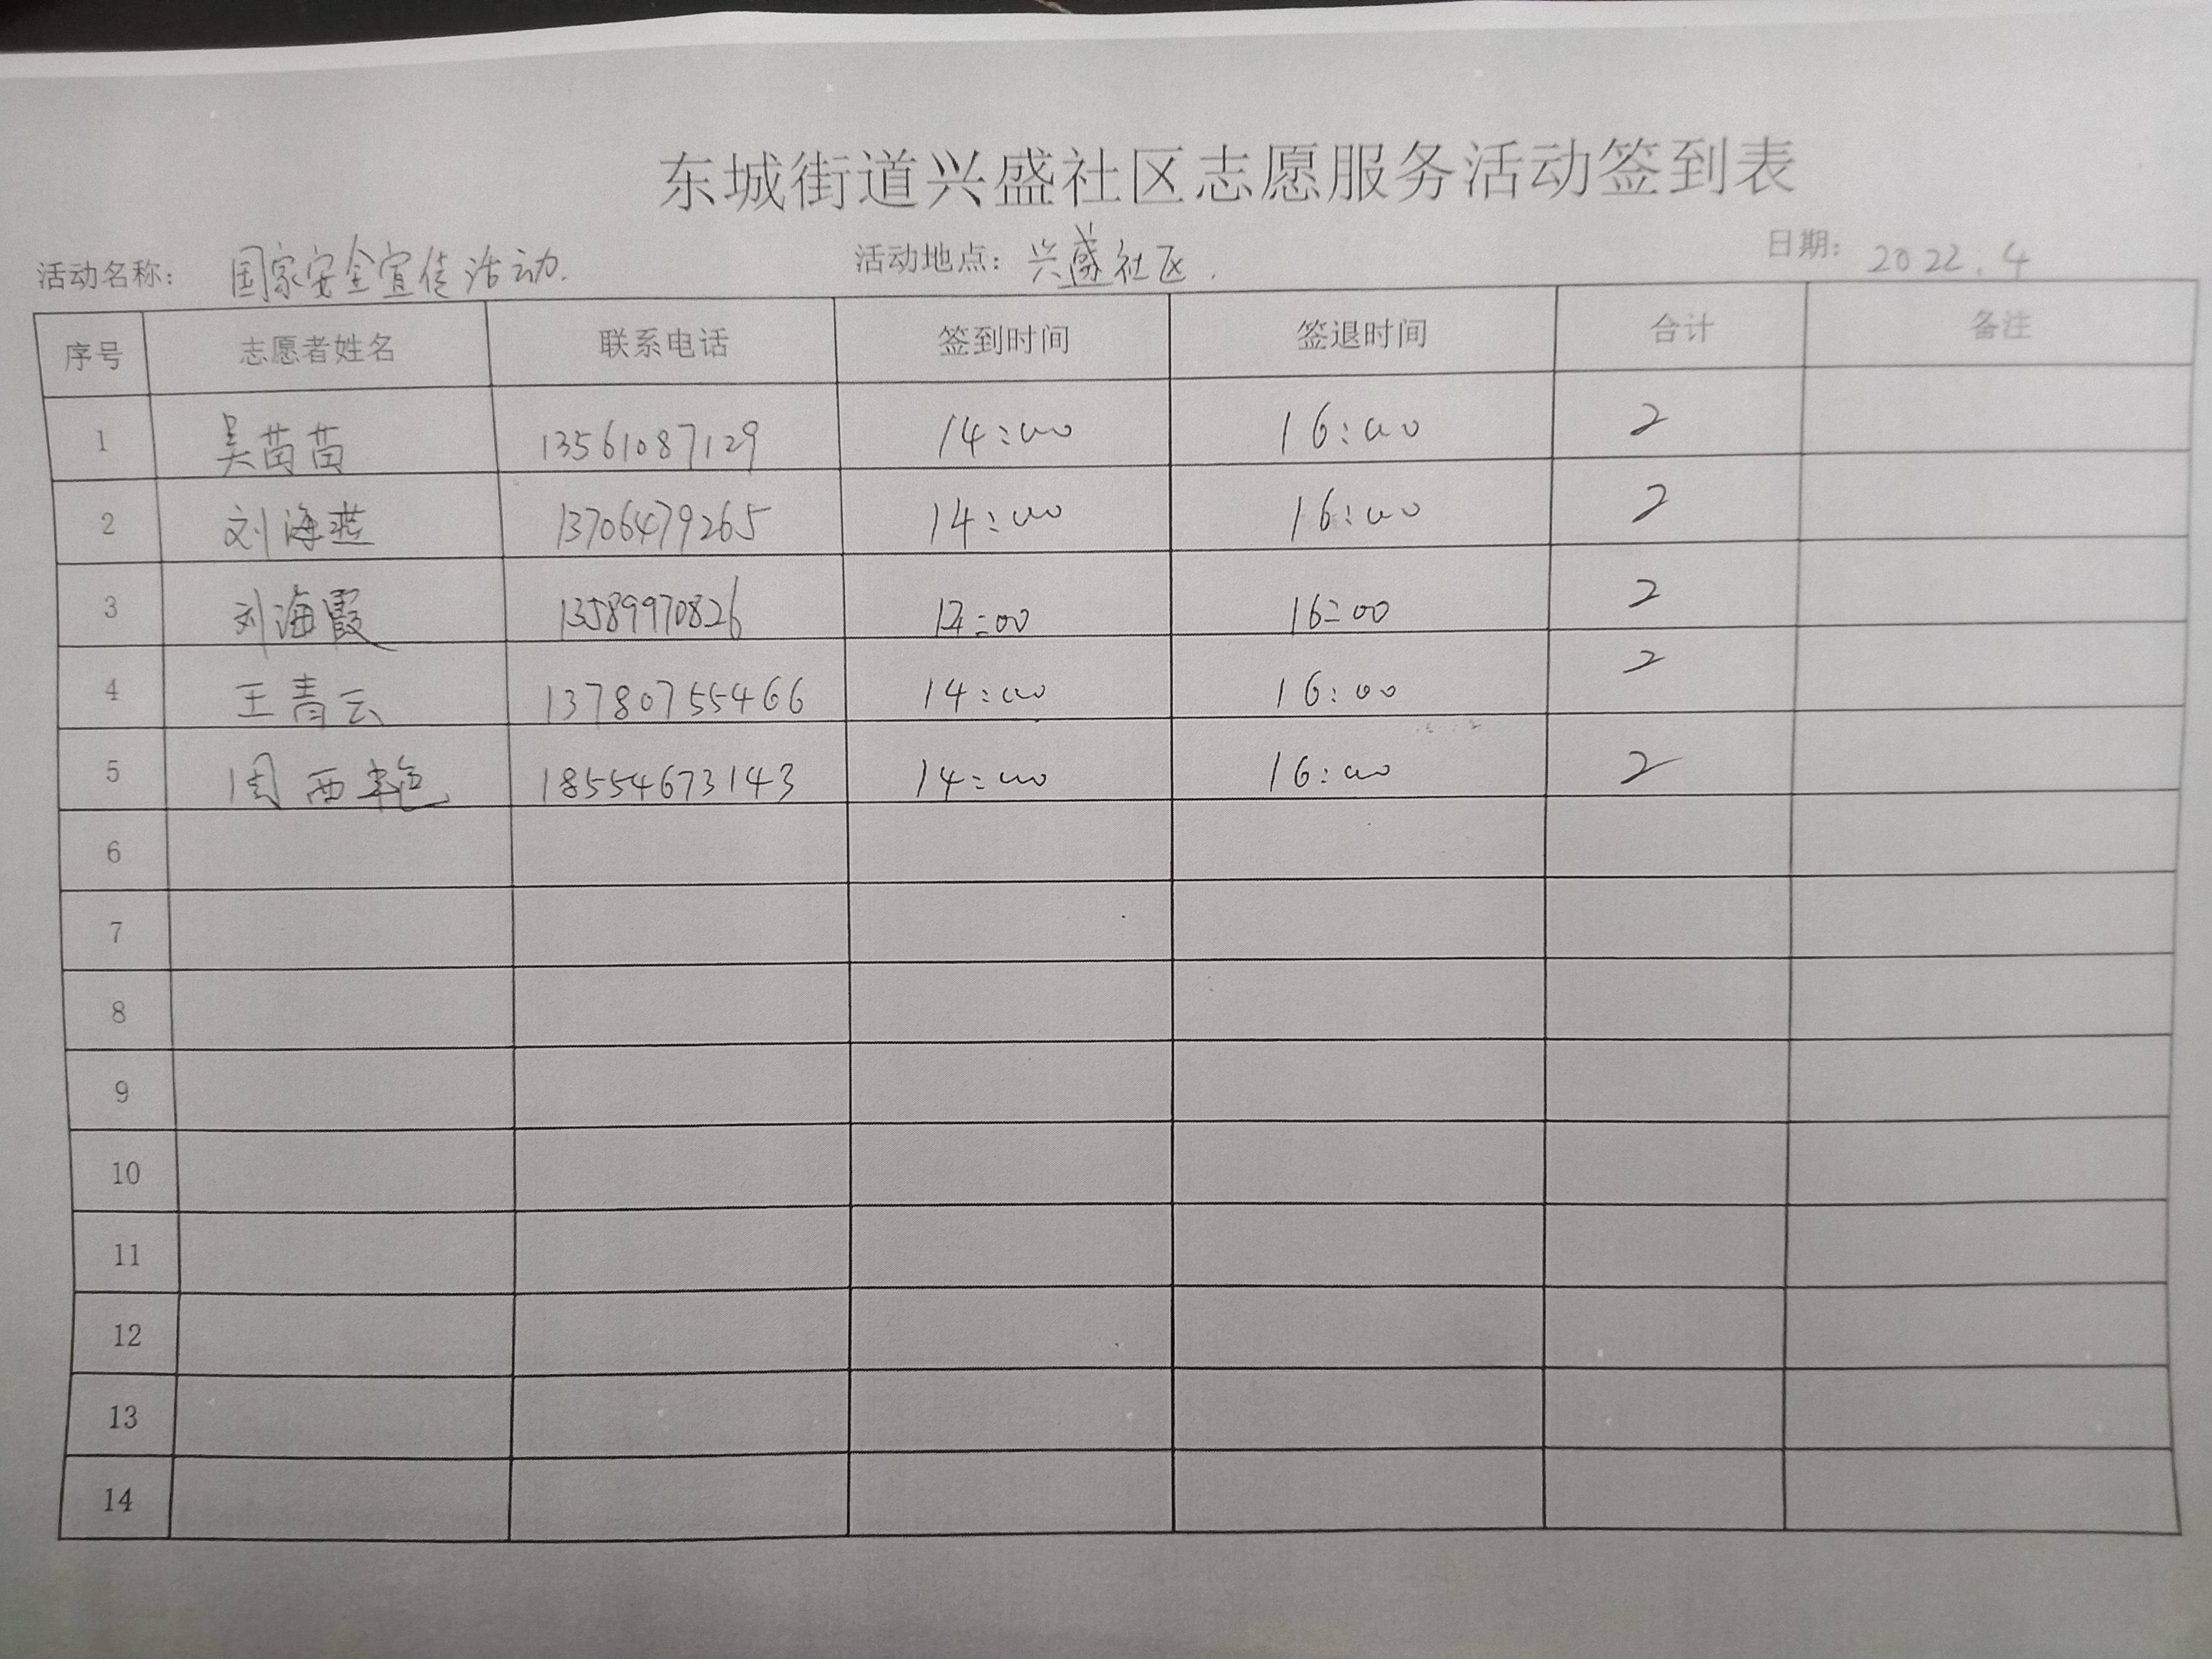 东城街道兴盛社区志愿服务活动签到表
活动名称： 国家安全宣传活动. 活动地点：兴盛社区. 日期：2022.4
序号 志愿者姓名 联系电话 签到时间 签退时间 合计 备注
1 吴苗苗 13561087129 14:00 16:00 2
2 刘海燕 13706479265 14:00 16:00 2
3 刘海霞 13589970826 14:00 16:00 2
4 王青云 13780755466 14:00 16:00 2
5 周西艳 18554673143 14:00 16:00 2
6
7
8
9
10
11
12
13
14